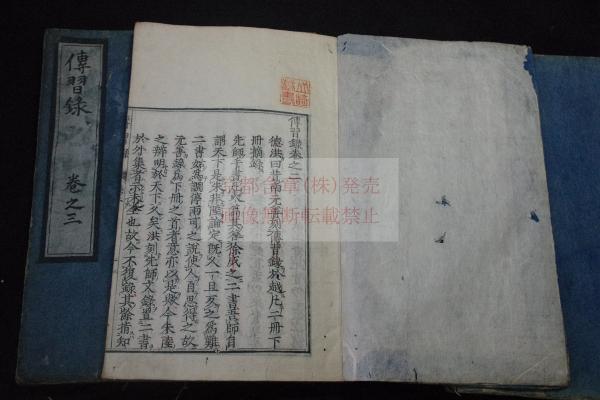 傳習錄
卷之三
傳習錄卷之二
德洪曰昔南元善刻傳習錄於越凡二冊下
冊摘錄
先師手書凡八篇其答徐成之二書吾師自
謂天下是朱非陸論定既久一旦反之為難
二書姑為調停兩可之說使人自思得之故
元善錄為下冊之首者意亦以是歟今朱陸
之辨明於天下久矣洪刻先師文錄置二書
於外集者示未全也故今不復錄其餘指知
京都合章(株)発売
画像無断転載禁止